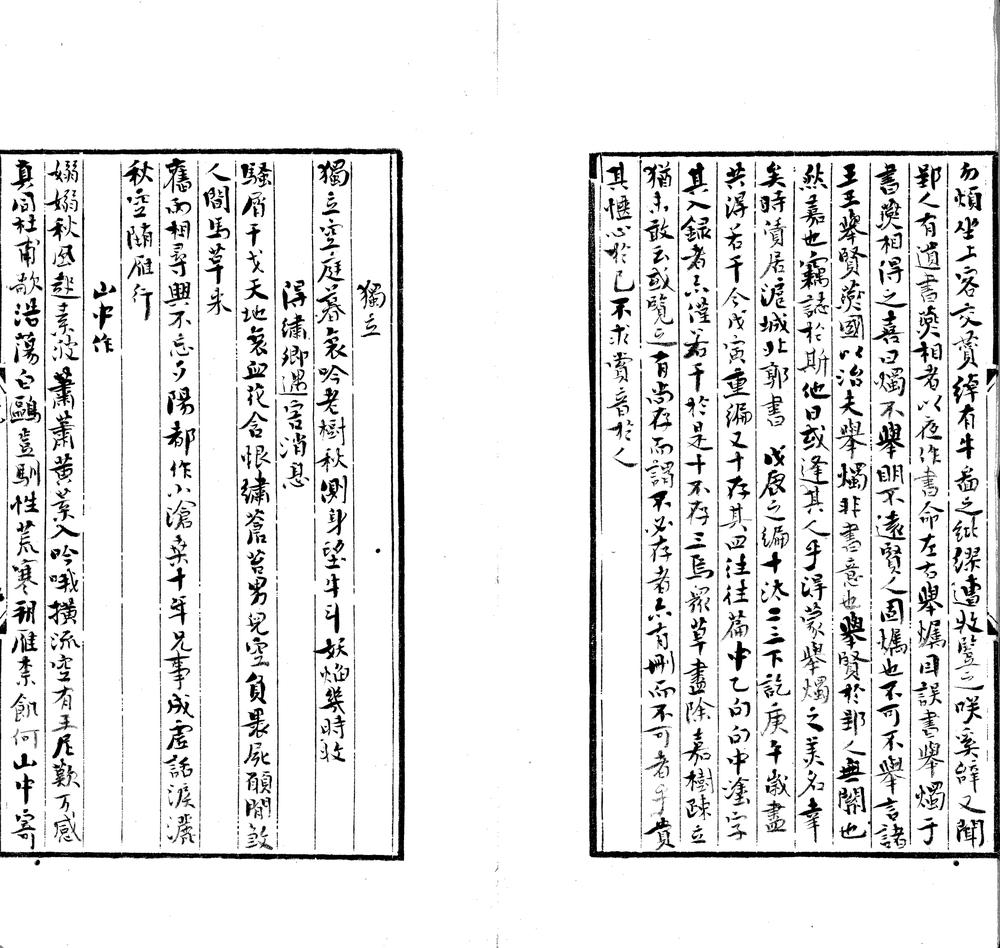 勿煩坐上客交貫綽有牛畜之紕繆遭牧豎之咲奚辭又聞
郢人有遺書燕相者以夜作書命左右舉燭因誤書舉燭于
書燕相得之喜曰燭不舉明不遠賢人固燭也不可不舉言諸
王王舉賢燕國以治夫舉燭非書意也舉賢於郢人無關也
然嘉也竊誌於斯他日或逢其人乎得蒙舉燭之美名幸
矣時漬居滬城北郭書 戊辰之編十汰二三下訖庚午歲盡
共得若干今戊寅重編又十存其四往往篇中乙句句中塗字
其入錄者亦僅若干於是十不存三焉眾草盡除嘉樹疎立
猶未敢云或覽之有尚存而謂不必存者亦有刪而不可者乎貴
其愜心於己不求賞音於人
獨立
獨立空庭暮哀吟老樹秋側身望牛斗妖焰幾時收
得繡卿遇害消息
騷屑干戈天地哀血花含恨繡蒼苔男兒空負裹屍願閒設
人間馬草來
舊雨相尋興不忘夕陽都作小滄桑十年兄事成虛話淚灑
秋空隨雁行
山中作
嫋嫋秋風起素波蕭蕭黃葉入吟哦橫流空有王尼歎万感
真同杜甫歌浩蕩白鷗豈馴性荒寒朔雁柰飢何山中寄